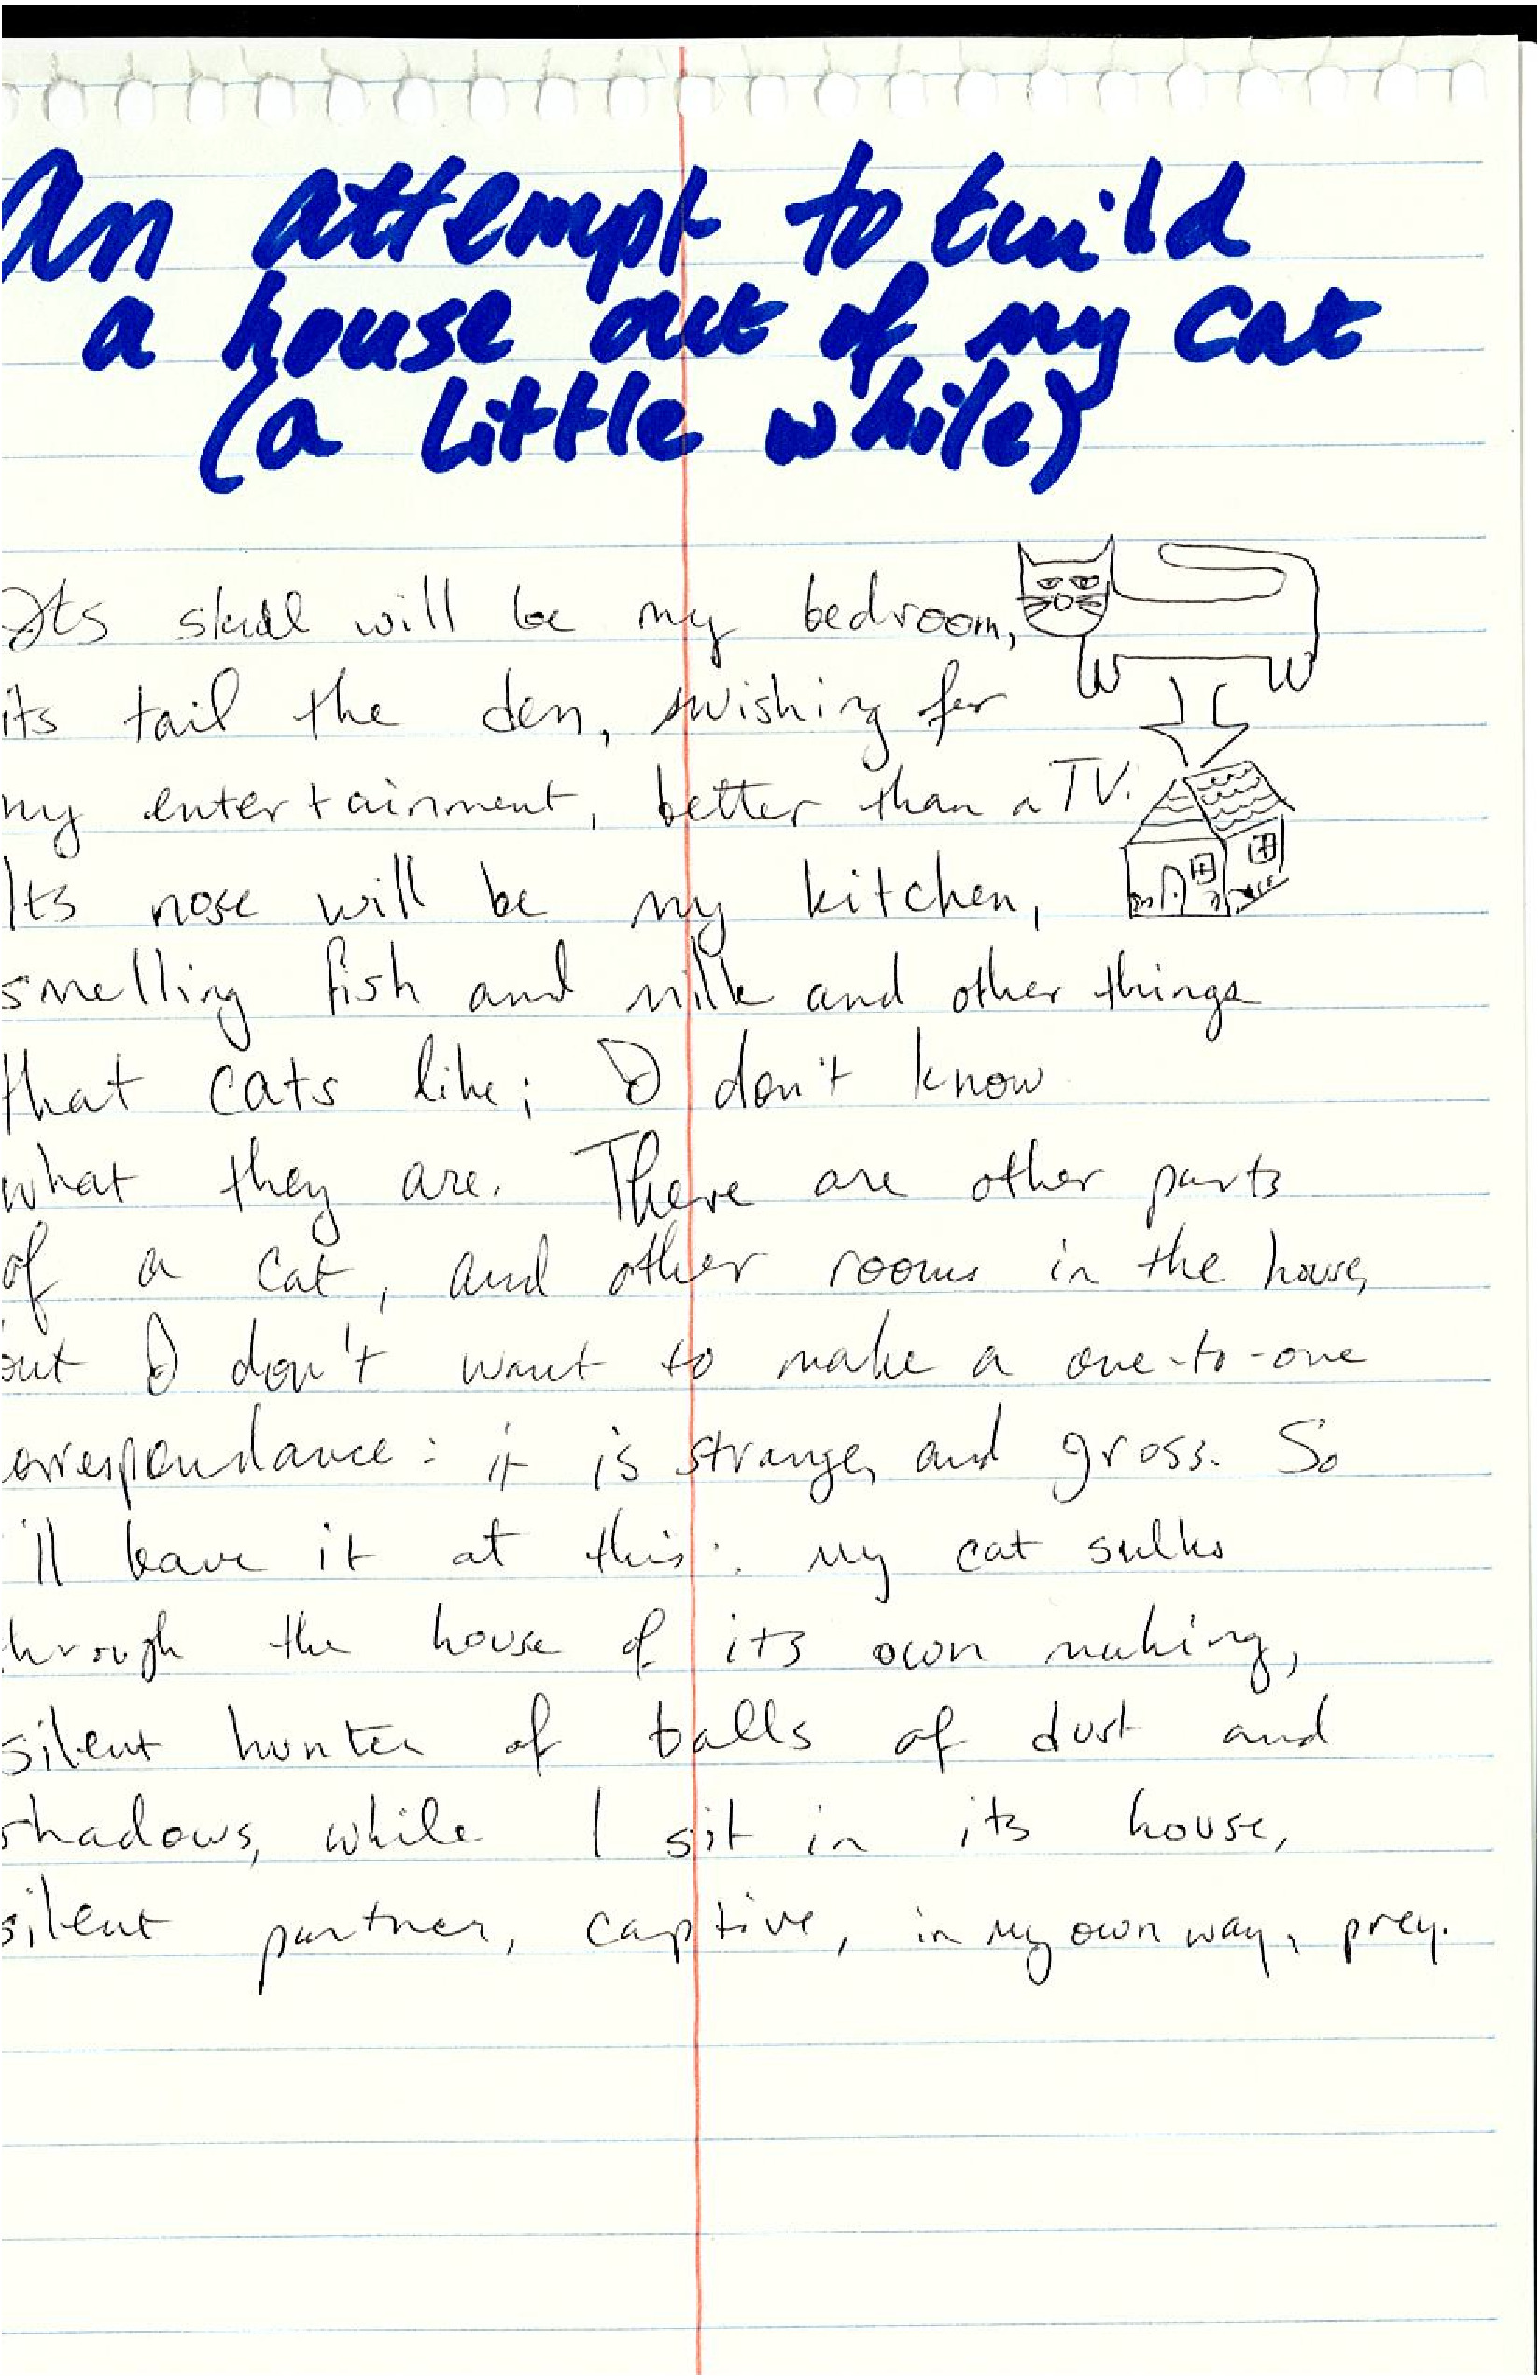 An attempt to build
a house out of my cat
(a little while)
Its skull will be my bedroom,
its tail the den, swishing for
my entertainment, better than a TV.
Its nose will be my kitchen,
smelling fish and milk and other things
that cats like; I don't know
what they are. There are other parts
of a cat, and other rooms in the house,
but I don't want to make a one-to-one
orrespondance: it is strange, and gross. So
'll leave it at this: my cat sulks
hrough the house of its own making,
silent hunter of balls of dust and
shadows, while I sit in its house,
silent partner, captive, in my own way, prey.